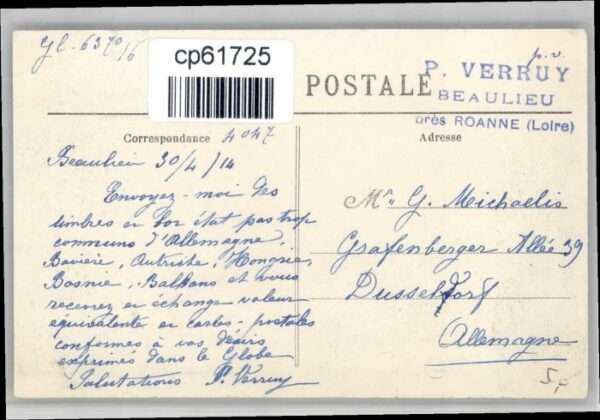 gl-6370/6
cp61725
POSTALE
p.v.
P. VERRUY
BEAULIEU
près ROANNE (Loire)
Correspondance 4047
Adresse
Beaulieu 30/4/14
Envoyez-moi des
timbres en bon état pas trop
communs d'Allemagne,
Bavière, Autriche, Hongrie,
Bosnie, Balkans et vous
recevrez en échange valeur
équivalente en cartes-postales
conformes à vos désirs
exprimés dans le Globe
Salutations P. Verruy
Mr. G. Michaelis
Grafenberger Allée 39
Dusseldorf
Allemagne